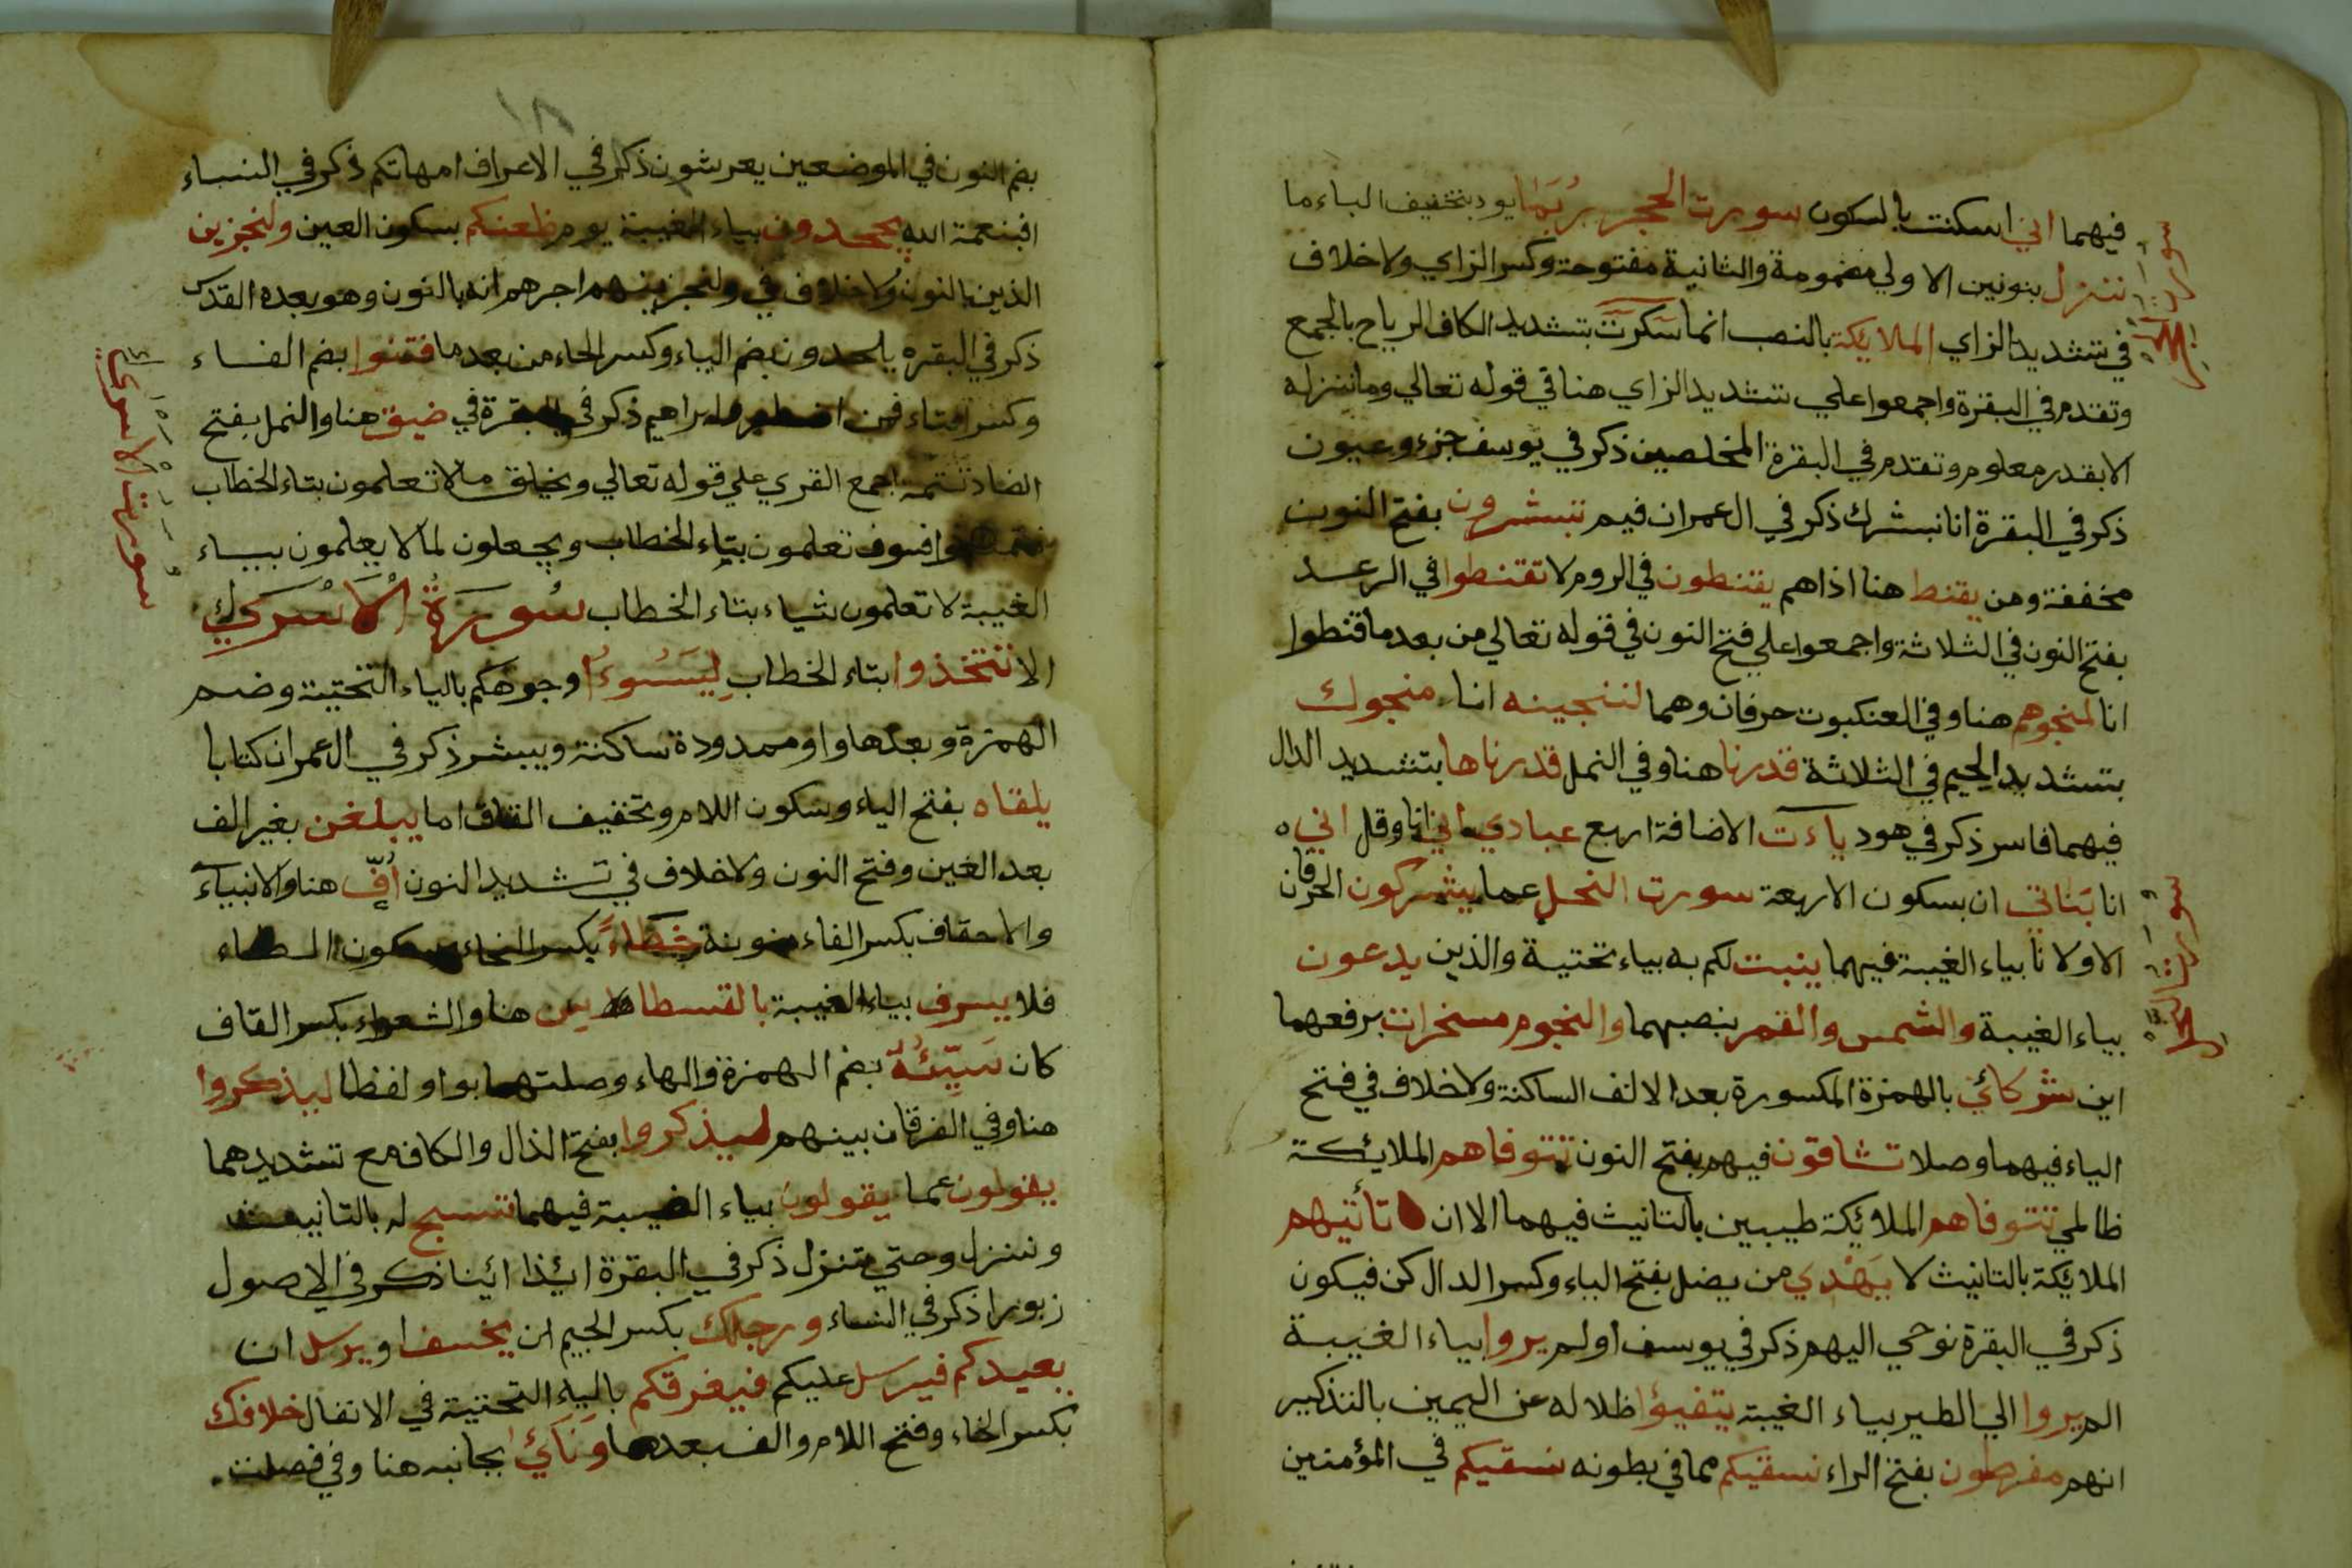 فيهما اني اسكنت بالسكون سورت الحجر رُبَمَا يود بتخفيف الباء ما
ننزل بنونين الاولي مضمومة والثانية مفتوحة وكسر الزاي ولاخلاف
في تشديد الزاي الملائكة بالنصب انما سكرت بتشديد الكاف الرياح بالجمع
وتقدم في البقرة واجمعوا علي تشديد الزاي هنا في قوله تعالي وما ننزله
الا بقدر معلوم وتقدم في البقرة المخلصين ذكر في يوسف جزء وعيون
ذكر في البقرة انا نبشرك ذكر في ال عمران فبم تبشرون بفتح النون
مخففة ومن يقنط هنا اذا هم يقنطون في الروم لا تقنطوا في الرعد
بفتح النون في الثلاثة واجمعوا علي فتح النون في قوله تعالي من بعد ما قنطوا
انا لمنجوهم هنا وفي العنكبوت حرفان وهما لننجينه انا منجوك
بتشديد الجيم في الثلاثة قدرنا هنا وفي النمل قدرناها بتشديد الدال
فيهما فاسر ذكر في هود ياءت الاضافة اربع عبادي اني انا وقل اني
انا بَناتي ان بسكون الاربعة سورت النحل عما يشركون الحرفان
الاولان بياء الغيبة فيهما ينبت لكم به بياء تحتية والذين يدعون
بياء الغيبة والشمس والقمر بنصبهما والنجوم مسخرات برفعهما
اين شركائي بالهمزة المكسورة بعد الالف الساكنة ولاخلاف في فتح
الياء فيهما وصلا تشاقون فيهم بفتح النون تتوفاهم الملائكة
ظالمي تتوفاهم الملائكة طيبين بالتانيث فيهما الا ان تأتيهم
الملائكة بالتانيث لا يَهْدي من يضل بفتح الياء وكسر الدال كن فيكون
ذكر في البقرة نوحي اليهم ذكر في يوسف اولم يروا بياء الغيبة
الم يروا الي الطير بياء الغيبة يتفيؤا ظلاله عن اليمين بالتذكير
انهم مفرطون بفتح الراء نسقيكم مما في بطونه نسقيكم في المؤمنين
سورت الحجر
سورت النحل
١٨
بضم النون في الموضعين يعرشون ذكر في الاعراف امهاتكم ذكر في النساء
افبنعمة الله يجحدون بياء الغيبة يوم ظعنكم بسكون العين ولنجزين
الذين بالنون ولاخلاف في ولنجزينهم اجرهم انه بالنون وهو بعده القدس
ذكر في البقره يلحدون بضم الياء وكسر الحاء من بعد ما فتنوا بضم الفاء
وكسر التاء فمن اضطر ابراهيم ذكر في البقرة في ضيق هنا والنمل بفتح
الضاد تتمة اجمع القري علي قوله تعالي ويخلق ما لا تعلمون بتاء الخطاب
فتمتعوا فسوف تعلمون بتاء الخطاب ويجعلون لما لا يعلمون بياء
الغيبة لا تعلمون شياء بتاء الخطاب سُورَةُ الْاَسْرَي
الا تتخذوا بتاء الخطاب لِيَسُوءُا وجوهكم بالياء التحتية وضم
الهمزة وبعدها واو ممدودة ساكنة ويبشر ذكر في ال عمران كتابا
يلقاه بفتح الياء وسكون اللام وتخفيف القاف اما يبلغن بغير الف
بعد الغين وفتح النون ولاخلاف في تشديد النون اُفٍّ هنا والانبياء
والاحقاف بكسر الفاء منونة خطاءً بكسر الخاء وسكون الطاء
فلا يسرف بياء الغيبة بالقسطاس هنا والشعراء بكسر القاف
كان سَيِّئُهُ بضم الهمزة والهاء وصلتهما بواو لفظا ليذكروا
هنا وفي الفرقان بينهم ليذكروا بفتح الذال والكاف مع تشديدهما
يقولون عما يقولون بياء الغيبة فيهما تسبح له بالتانيث
وننزل وحتي تنزل ذكر في البقرة ائذا ائنا ذكر في الاصول
زبورا ذكر في النساء ورجلك بكسر الجيم ان يخسف او يرسل ان
يعيدكم فيرسل عليكم فيغرقكم بالياء التحتية في الانفال خلافك
بكسر الخاء وفتح اللام والف بعدها ونَائَ بجانبه هنا وفي فصلت
سورت الاسري